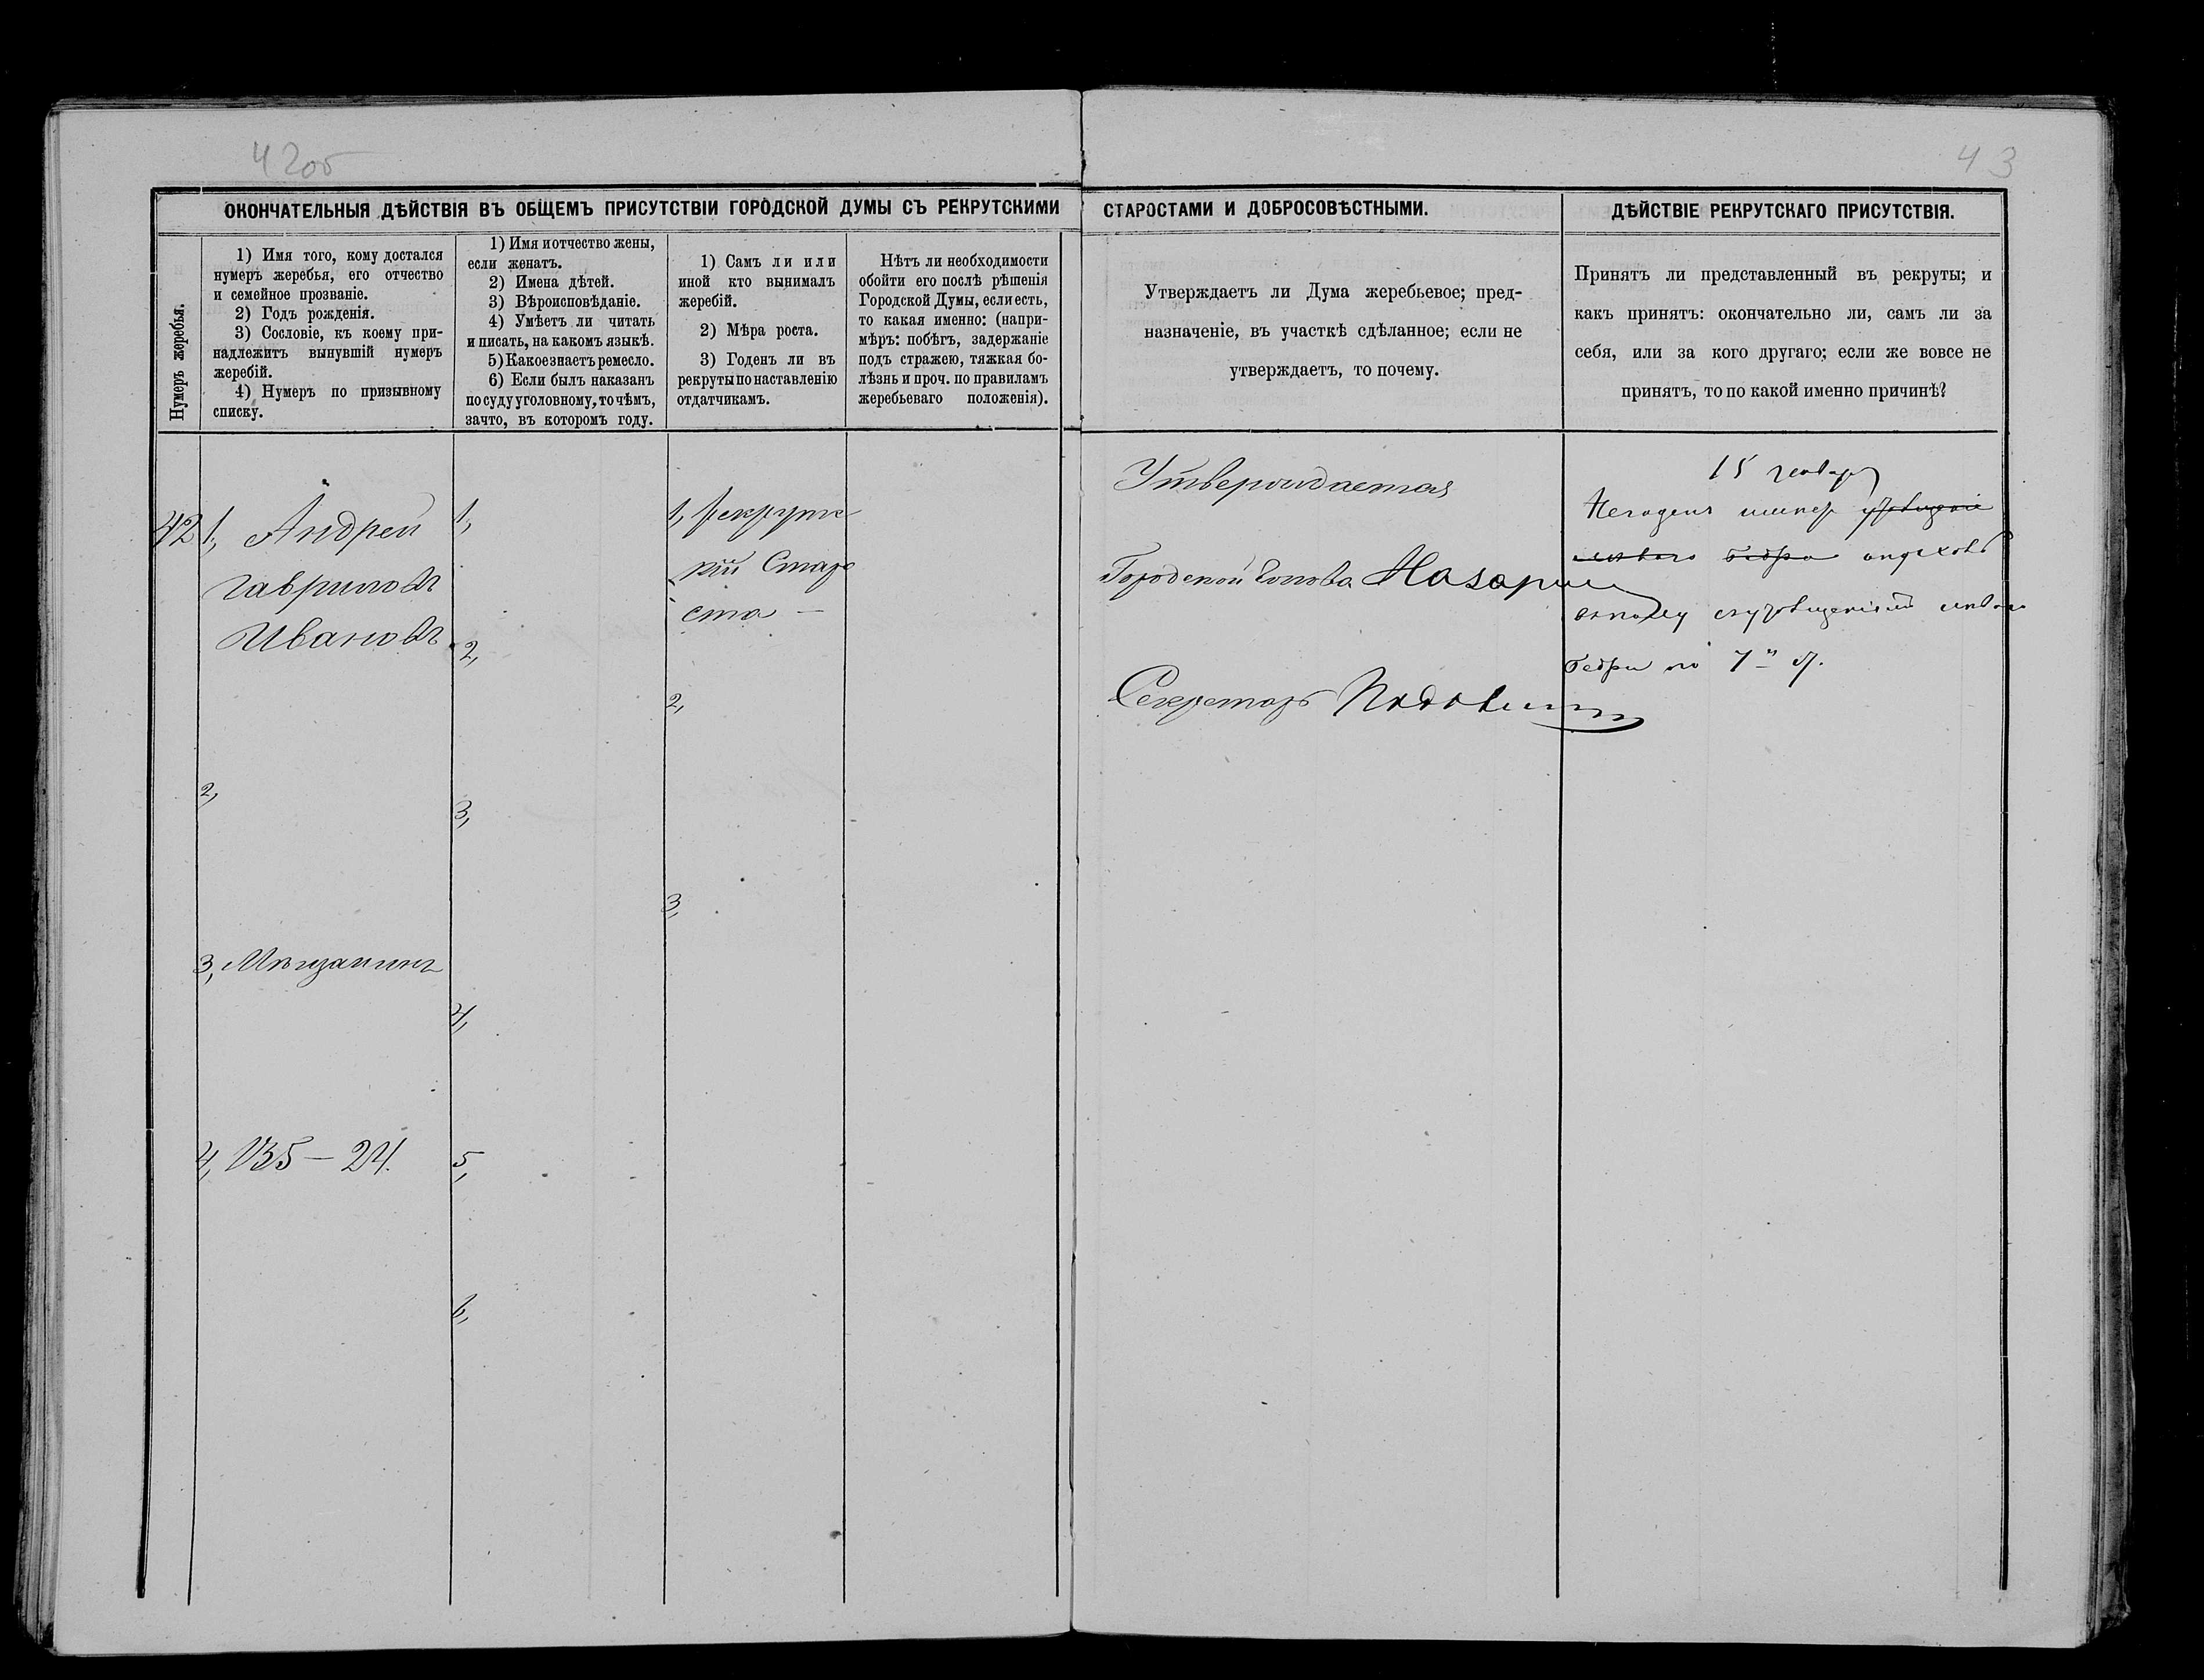 42об
43
ОКОНЧАТЕЛЬНЫЯ ДѢЙСТВІЯ ВЪ ОБЩЕМЪ ПРИСУТСТВІИ ГОРОДСКОЙ ДУМЫ СЪ РЕКРУТСКИМИ СТАРОСТАМИ И ДОБРОСОВѢСТНЫМИ.
ДѢЙСТВІЕ РЕКРУТСКАГО ПРИСУТСТВІЯ.
Нумеръ жеребья.
1) Имя того, кому достался
нумеръ жеребья, его отчество
и семейное прозваніе.
2) Годъ рожденія.
3) Сословіе, къ коему при-
надлежитъ вынувшій нумеръ
жеребій.
4) Нумеръ по призывному
списку.
1) Имя и отчество жены,
если женатъ.
2) Имена дѣтей.
3) Вѣроисповѣданіе.
4) Умѣетъ ли читать
и писать, на какомъ языкѣ.
5) Какое знаетъ ремесло.
6) Если былъ наказанъ
по суду уголовному, то чѣмъ,
за что, въ которомъ году.
1) Самъ ли или
иной кто вынималъ
жеребій.
2) Мѣра роста.
3) Годенъ ли въ
рекруты по наставленію
отдатчикамъ.
Нѣтъ ли необходимости
обойти его послѣ рѣшенія
Городской Думы, если есть,
то какая именно: (напри-
мѣръ: побѣгъ, задержаніе
подъ стражею, тяжкая бо-
лѣзнь и проч. по правиламъ
жеребьеваго положенія).
Утверждаетъ ли Дума жеребьевое; пред-
назначеніе, въ участкѣ сдѣланное; если не
утверждаетъ, то почему.
Принятъ ли представленный въ рекруты; и
какъ принятъ: окончательно ли, самъ ли за
себя, или за кого другаго; если же вовсе не
принятъ, то по какой именно причинѣ?
42
1, Андрей
Гавриловъ
Ивановъ
2,
3, Мѣщанинъ
4, 135 – 24.
1,
2,
3,
4,
5,
6,
1, рекрутс
кій Старо
ста –
2,
3,
Утверждается
Городской Голова Назарин
Секретарь
15 генваря
Негоденъ
лѣваго бедра
лѣваго
бедра по 7 п